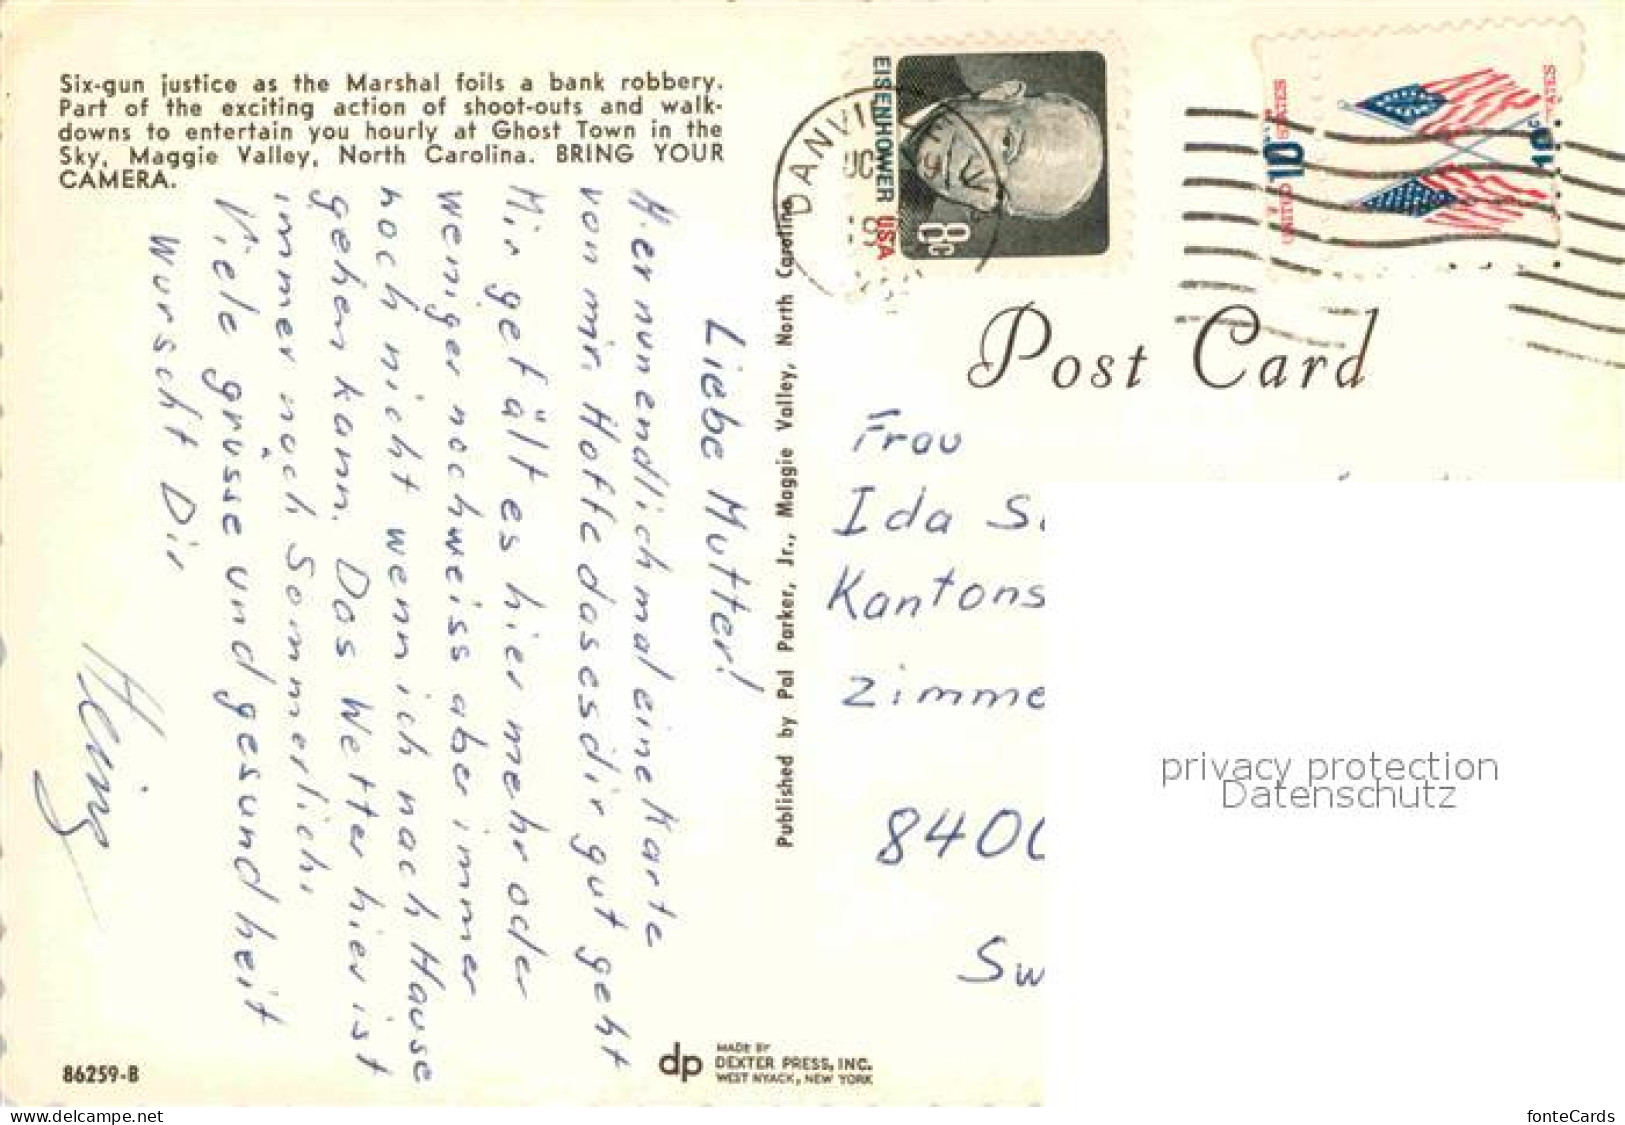 Six-gun justice as the Marshal foils a bank robbery.
Part of the exciting action of shoot-outs and walk-
downs to entertain you hourly at Ghost Town in the
Sky, Maggie Valley, North Carolina. BRING YOUR
CAMERA.
Liebe Mutter!
Hier nun endlich mal eine Karte
von mir. Hoffe das es dir gut geht
Mir gefält es hier mehr oder
weniger noch weiss aber immer
noch nicht wenn ich nach Hause
gehen kann. Das Wetter hier ist
immer noch Sommerlich.
Viele grüsse und gesundheit
wünscht Dir
Heinz
86259-B
Published by Pal Parker, Jr., Maggie Valley, North Carolina
dp
MADE BY
DEXTER PRESS, INC.
WEST NYACK, NEW YORK
DANVILLE
EISENHOWER USA
8c
UNITED STATES
10c
10c
Post Card
Frau
Ida S.
Kantons
Zimme
8400
Sw
privacy protection
Datenschutz
www.delcampe.net
fonteCards